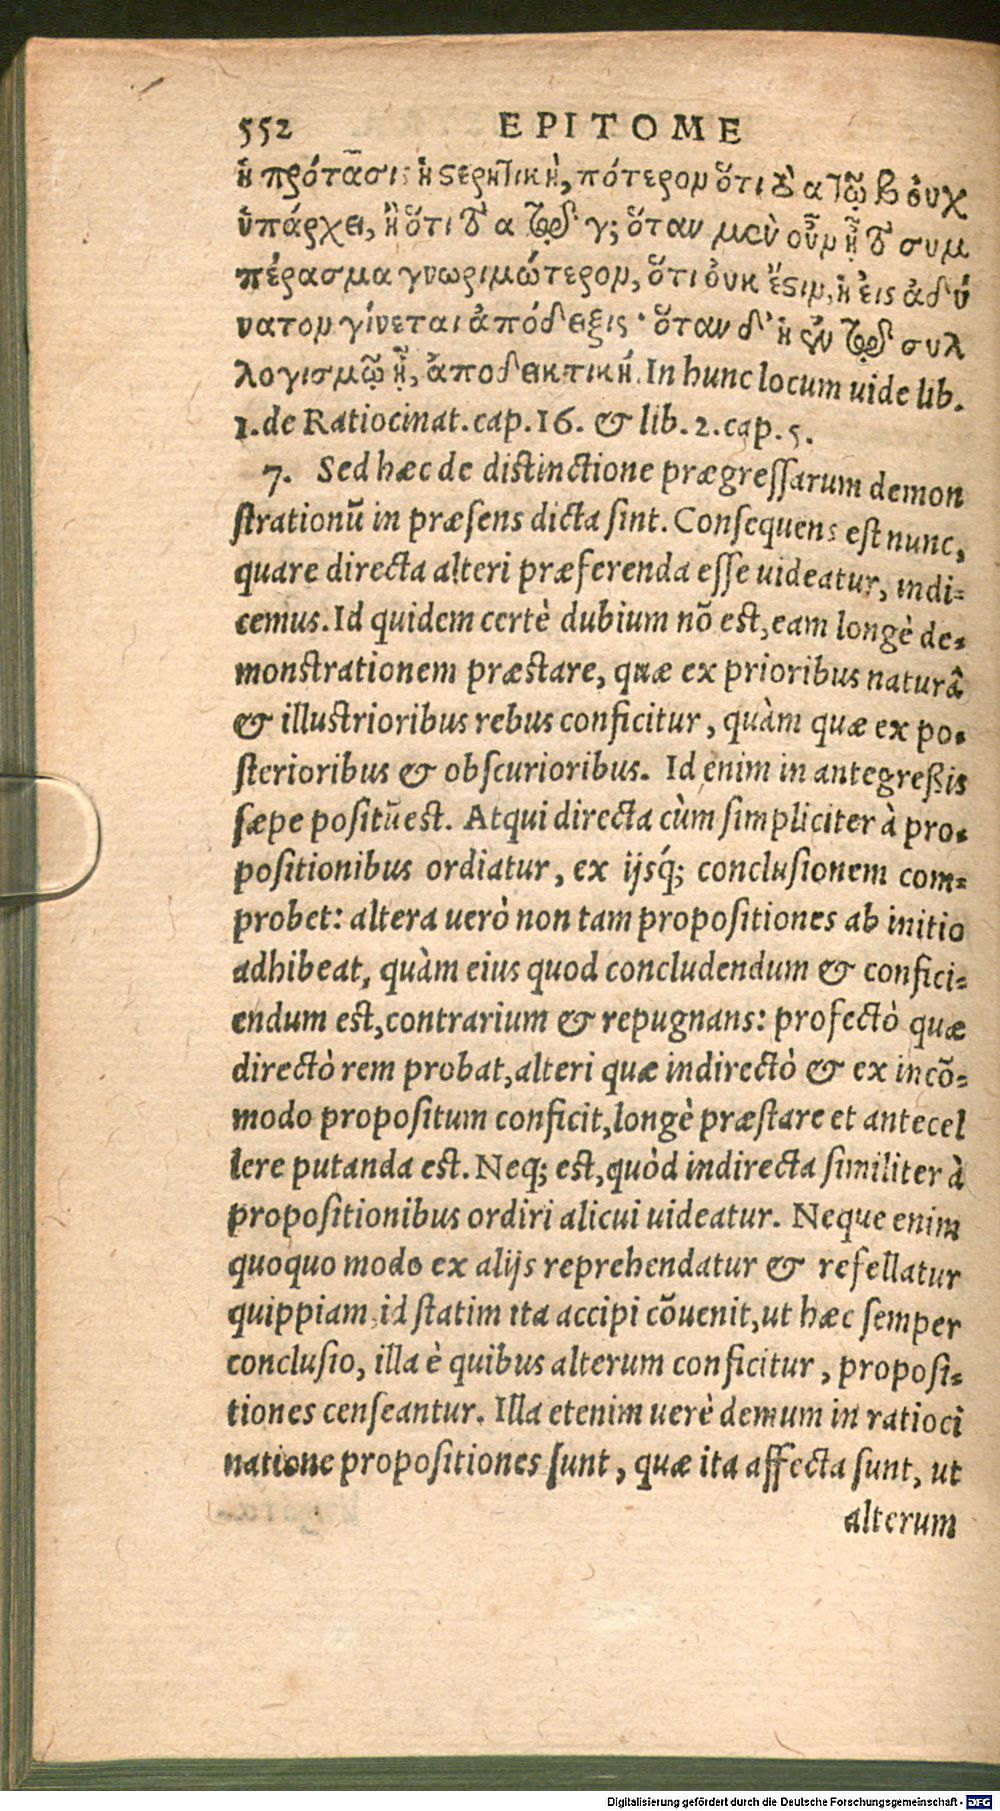 552 EPITOME
ἡ πρότασις ἡ ϛερητικὴ, πότερον ὅτι τὸ α τῷ β οὐχ
ὑπάρχει, ἢ ὅτι τὸ α τῷ γ; ὅταν μὲν οὖν ᾖ τὸ συμ
πέρασμα γνωριμώτερον, ὅτι οὐκ ἔϛιν, ἡ εἰς ἀδύ
νατον γίνεται ἀπόδειξις· ὅταν δ' ἡ ἐν τῷ συλ
λογισμῷ ᾖ, ἀποδεικτική. In hunc locum uide lib.
1. de Ratiocinat. cap. 16. & lib. 2. cap. 5.
7. Sed hæc de distinctione prægressarum demon
strationũ in præsens dicta sint. Consequens est nunc,
quare directa alteri præferenda esse uideatur, indi=
cemus. Id quidem certè dubium nõ est, eam longè de=
monstrationem præstare, quæ ex prioribus naturâ
& illustrioribus rebus conficitur, quàm quæ ex po=
sterioribus & obscurioribus. Id enim in antegreßis
sæpe positũ est. Atqui directa cùm simpliciter à pro=
positionibus ordiatur, ex ijsq́; conclusionem com=
probet: altera uerò non tam propositiones ab initio
adhibeat, quàm eius quod concludendum & confici=
endum est, contrarium & repugnans: profectò quæ
directò rem probat, alteri quæ indirectò & ex incõ=
modo propositum conficit, longè præstare et antecel
lere putanda est. Neq; est, quòd indirecta similiter à
propositionibus ordiri alicui uideatur. Neque enim
quoquo modo ex alijs reprehendatur & refellatur
quippiam, id statim ita accipi cõuenit, ut hæc semper
conclusio, illa è quibus alterum conficitur, proposi=
tiones censeantur. Illa etenim uerè demum in ratioci
natione propositiones sunt, quæ ita affecta sunt, ut
alterum
Digitalisierung gefördert durch die Deutsche Forschungsgemeinschaft - DFG